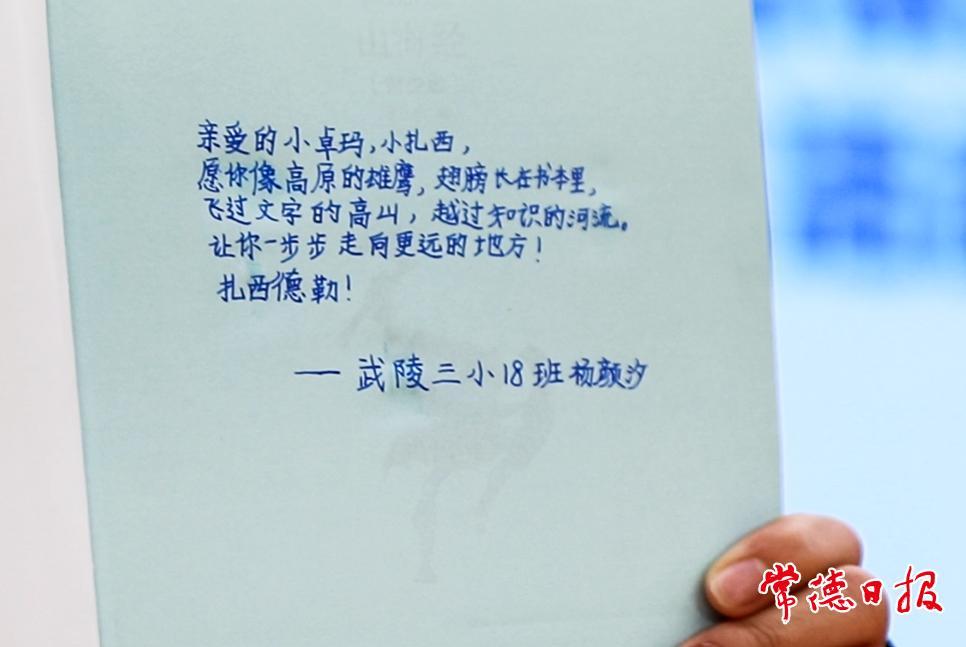 山海经
亲爱的小卓玛,小扎西,
愿你像高原的雄鹰,翅膀长在书本里,
飞过文字的高山,越过知识的河流。
让你一步步走向更远的地方!
扎西德勒!
——武陵三小18班杨颜汐
常德日报